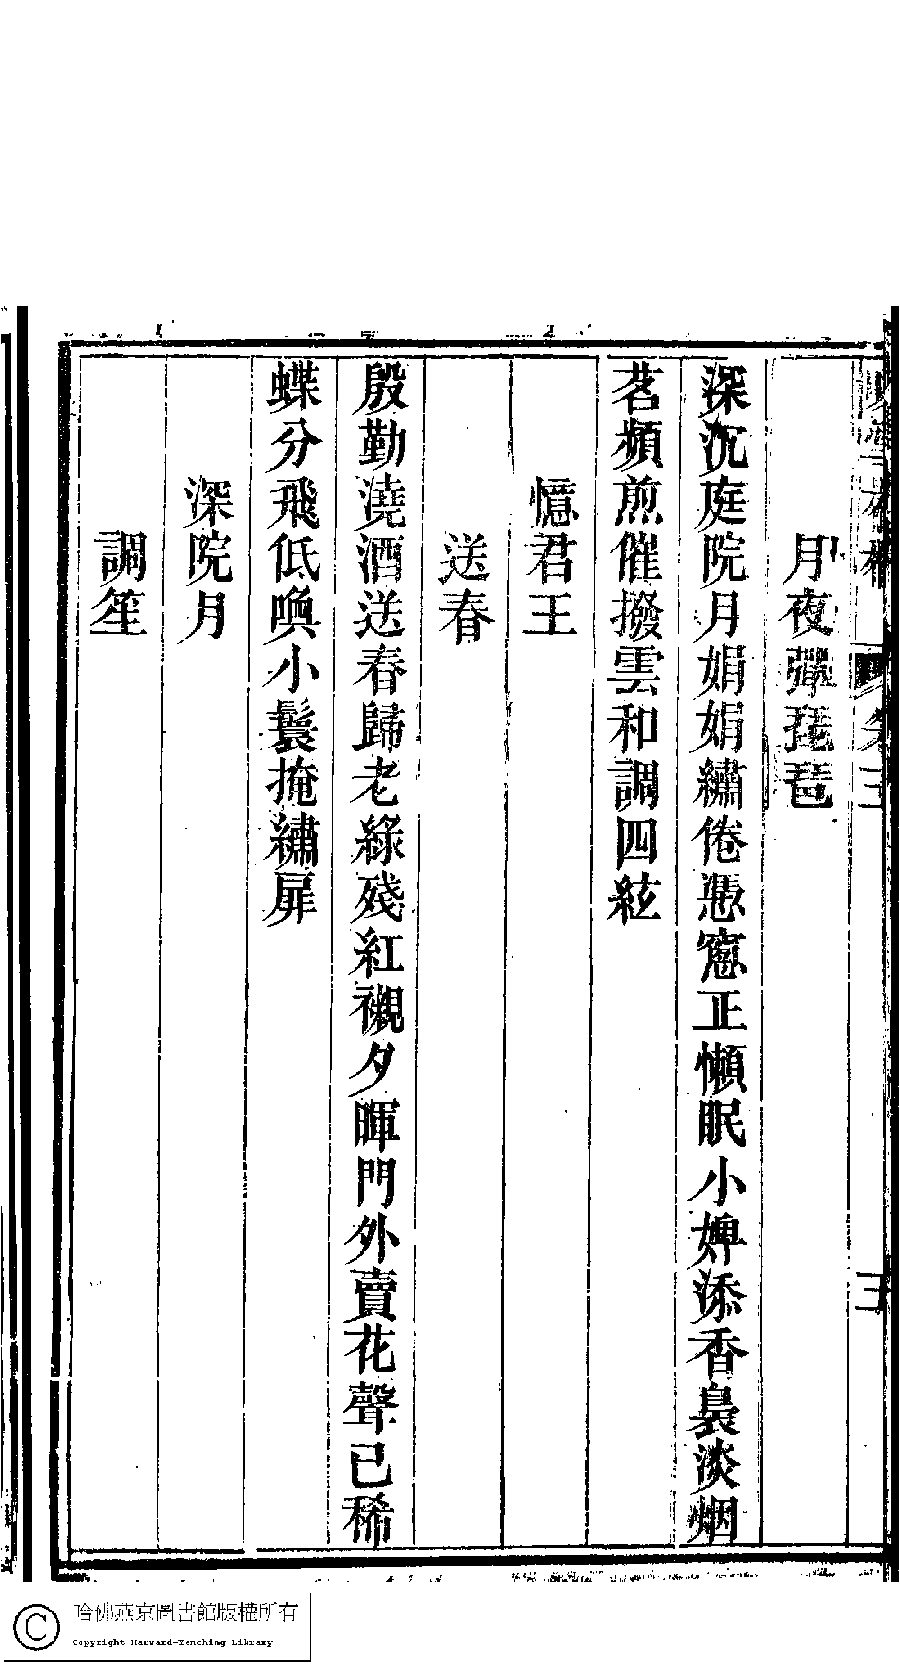 月夜彈琵琶
深沉庭院月娟娟繡倦憑窻正懶眠小婢添香裊淡烟
茗頻煎催撥雲和調四絃
憶君王
送春
殷勤澆酒送春歸老綠殘紅襯夕暉門外賣花聲已稀
蝶分飛低喚小鬟掩繡扉
深院月
調笙
哈佛燕京圖書館版權所有
Copyright Harvard-Yenching Library